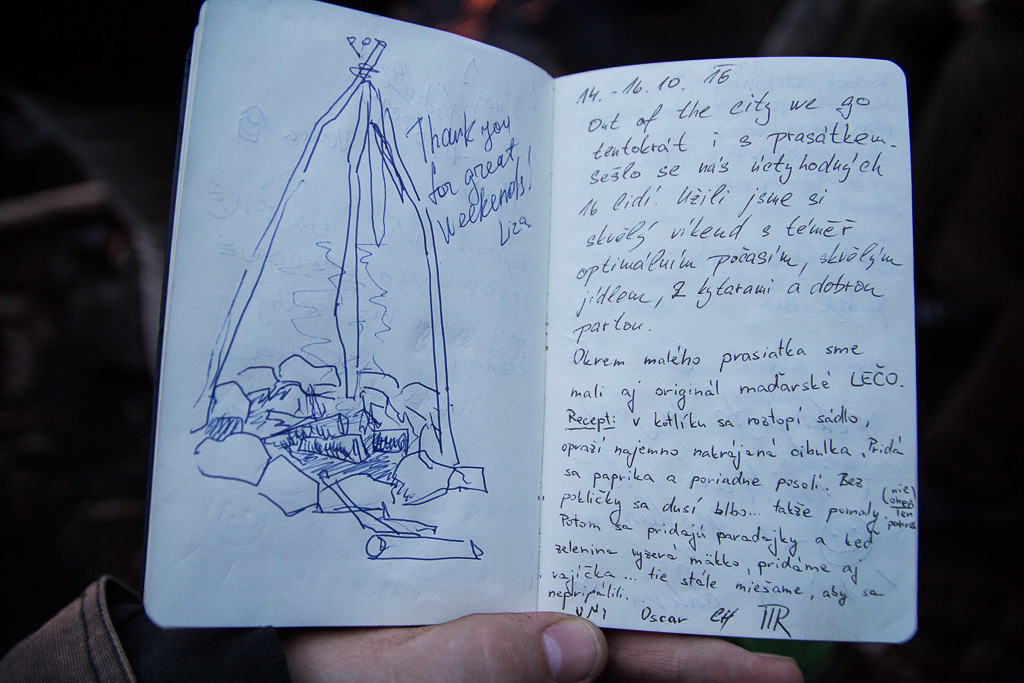 Thank you
for great
weekends!
Liza
14. - 16. 10. 16
Out of the city we go
tentokrát i s prasátkem.
sešlo se nás úctyhodných
16 lidí! Užili jsme si
skvělý víkend s téměř
optimálním počasím, skvělým
jídlem, z kytarami a dobrou
partou.
Okrem malého prasiatka sme
mali aj originál maďarské LEČO.
Recept: v kotlíku sa roztopí sádlo,
opraží najemno nakrájená cibulka. Pridá
sa paprika a poriadne posolí. Bez
pokličky sa dusí blbo... takže pomaly.
(nie
oheň
len
Potom sa pridajú paradajky a keď
zelenina vyzerá mäkko, pridáme aj
vajíčka... tie stále miešame, aby sa
nepripálili.
Oscar